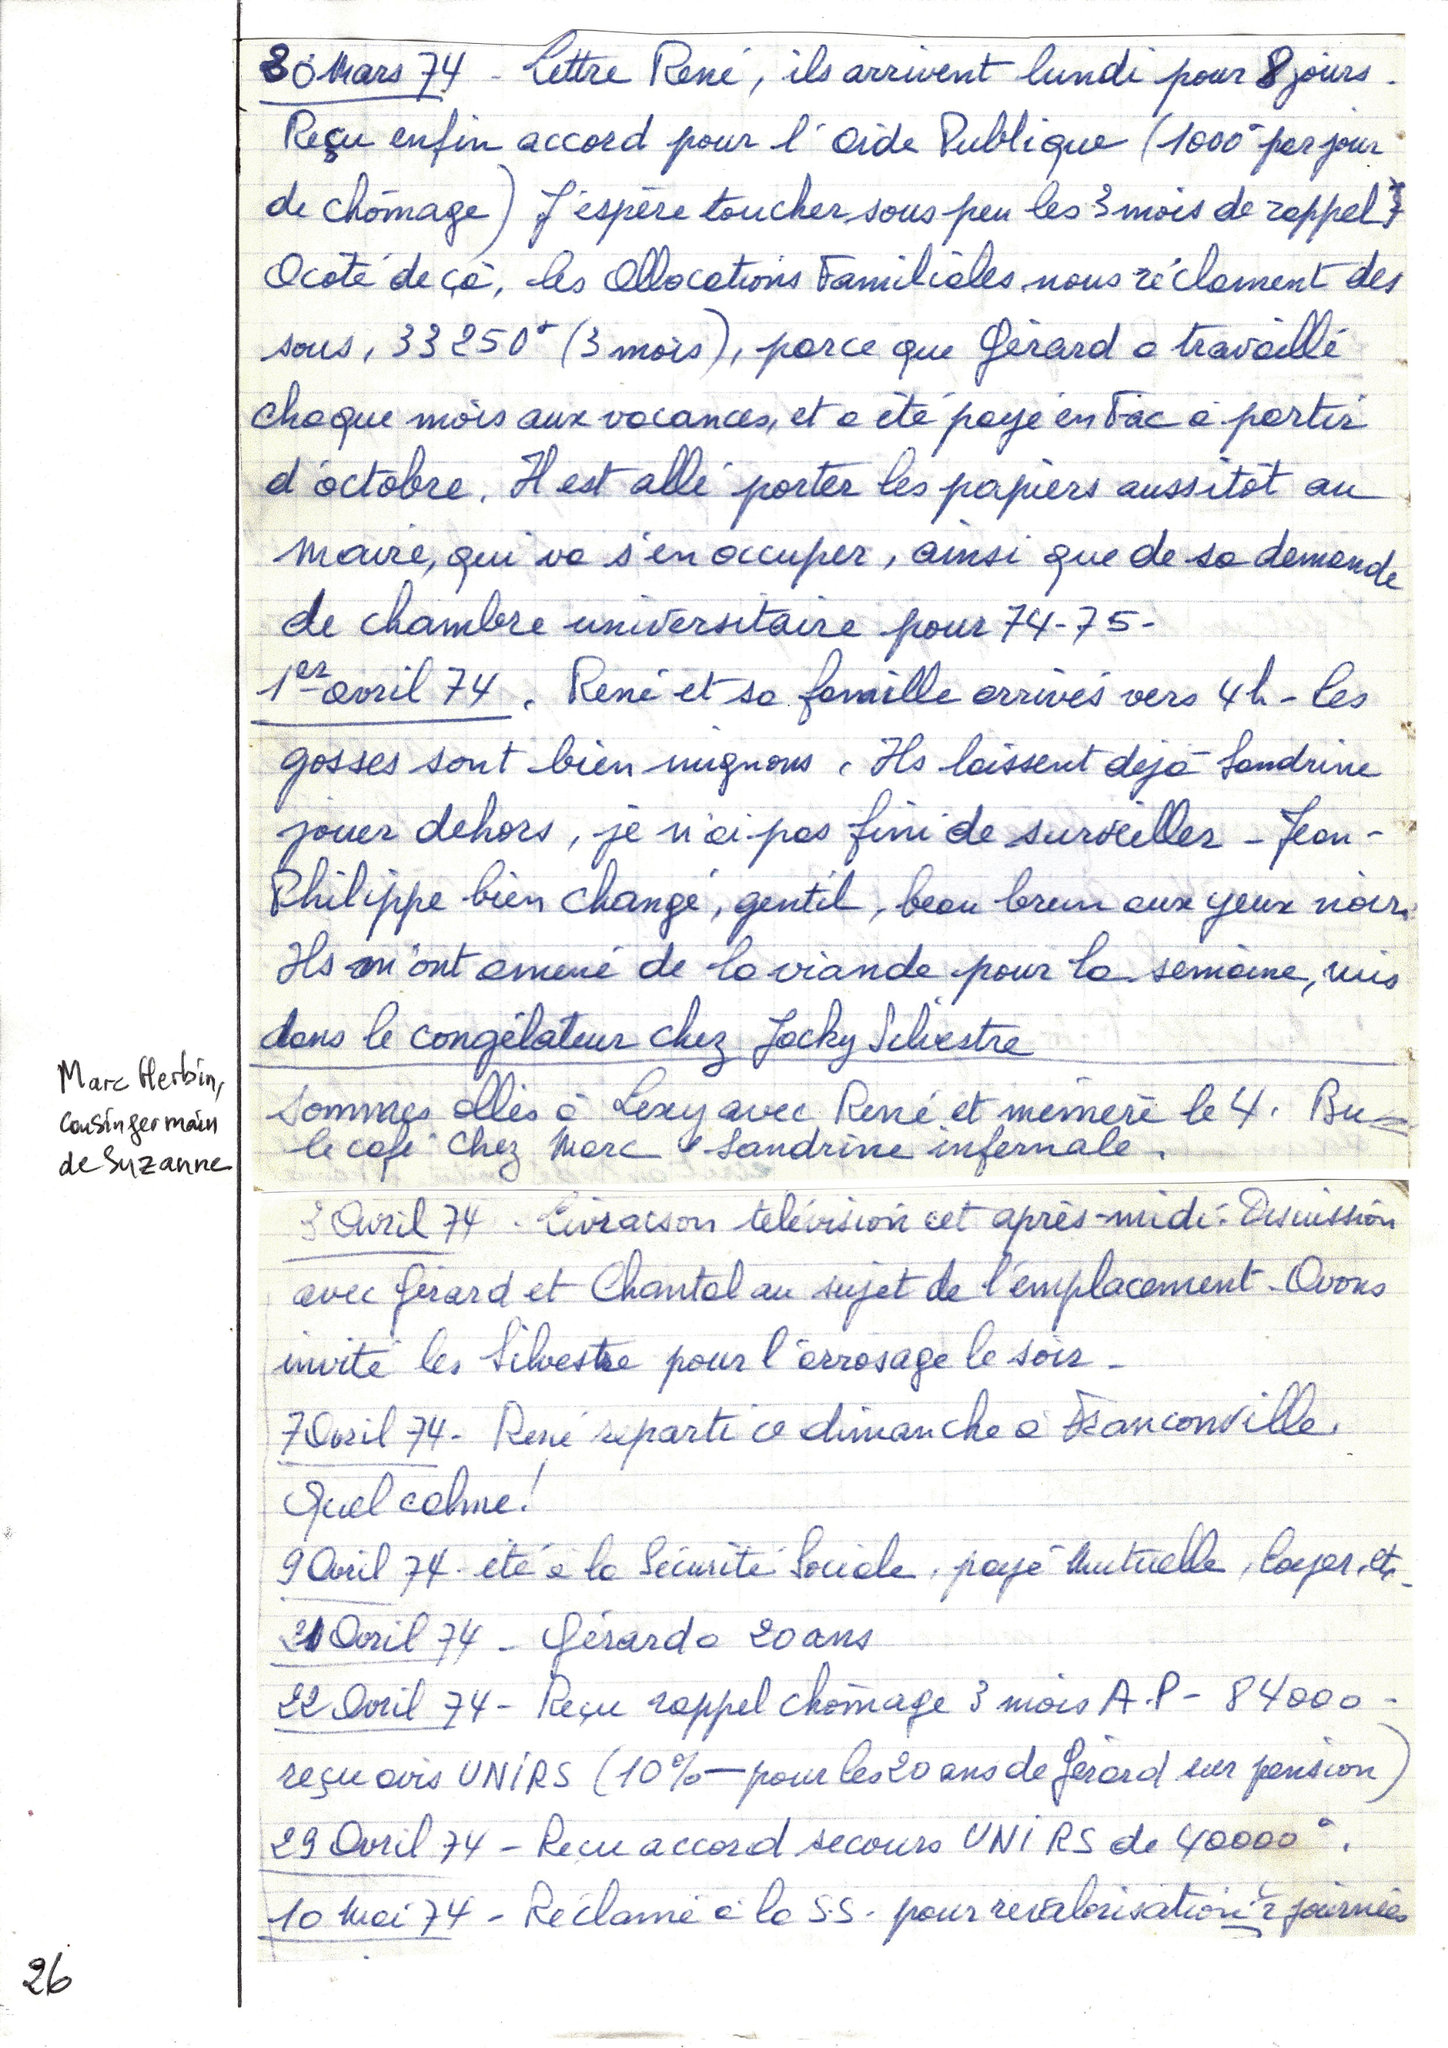 30 Mars 74 - Lettre René, ils arrivent lundi pour 8 jours.
Reçu enfin accord pour l'aide Publique (1000° par jour
de chômage) J'espère toucher sous peu les 3 mois de rappel
A côté de çà, les Allocations Familiales nous réclament des
sous, 33250° (3 mois), parce que Gérard a travaillé
chaque mois aux vacances, et a été payé en Fac à partir
d'octobre. Il est allé porter les papiers aussitôt au
Maire, qui va s'en occuper, ainsi que de sa demande
de chambre universitaire pour 74-75-
1er avril 74. René et sa famille arrivés vers 4h - les
gosses sont bien mignons. Ils laissent déjà Sandrine
jouer dehors, je n'ai pas fini de surveiller - Jean-
Philippe bien changé, gentil, beau brun aux yeux noirs
Ils m'ont amené de la viande pour la semaine, mis
dans le congélateur chez Jacky Silvestre
Sommes allés à Lexy avec René et mémère le 4. Bu
le café chez Marc. Sandrine infernale.
Marc Herbin,
cousin germain
de Suzanne
3 Avril 74 - Livraison télévision cet après-midi. Discussion
avec Gérard et Chantal au sujet de l'emplacement - Avons
invité les Silvestre pour l'arrosage le soir -
7 Avril 74 - René reparti ce dimanche à Franconville.
Quel calme!
9 Avril 74 - été à la Sécurité Sociale, payé Mutuelle, loyer, etc -
21 Avril 74 - Gérard a 20 ans
22 Avril 74 - Reçu rappel chômage 3 mois A.P - 84000 -
reçu avis UNIRS (10% — pour les 20 ans de Gérard sur pension)
29 Avril 74 - Reçu accord secours UNIRS de 40000°.
10 Mai 74 - Réclamé à la S.S. pour revalorisation journées
26